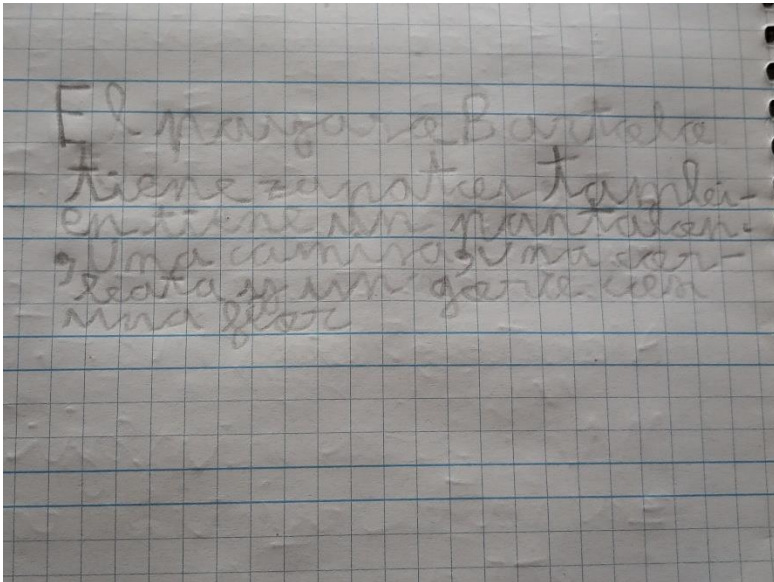 El pajaro Bartolo
tiene zapatos tamb-
en tiene un pantalon
, una camisa, una cor-
bata y un gorro con
una flor